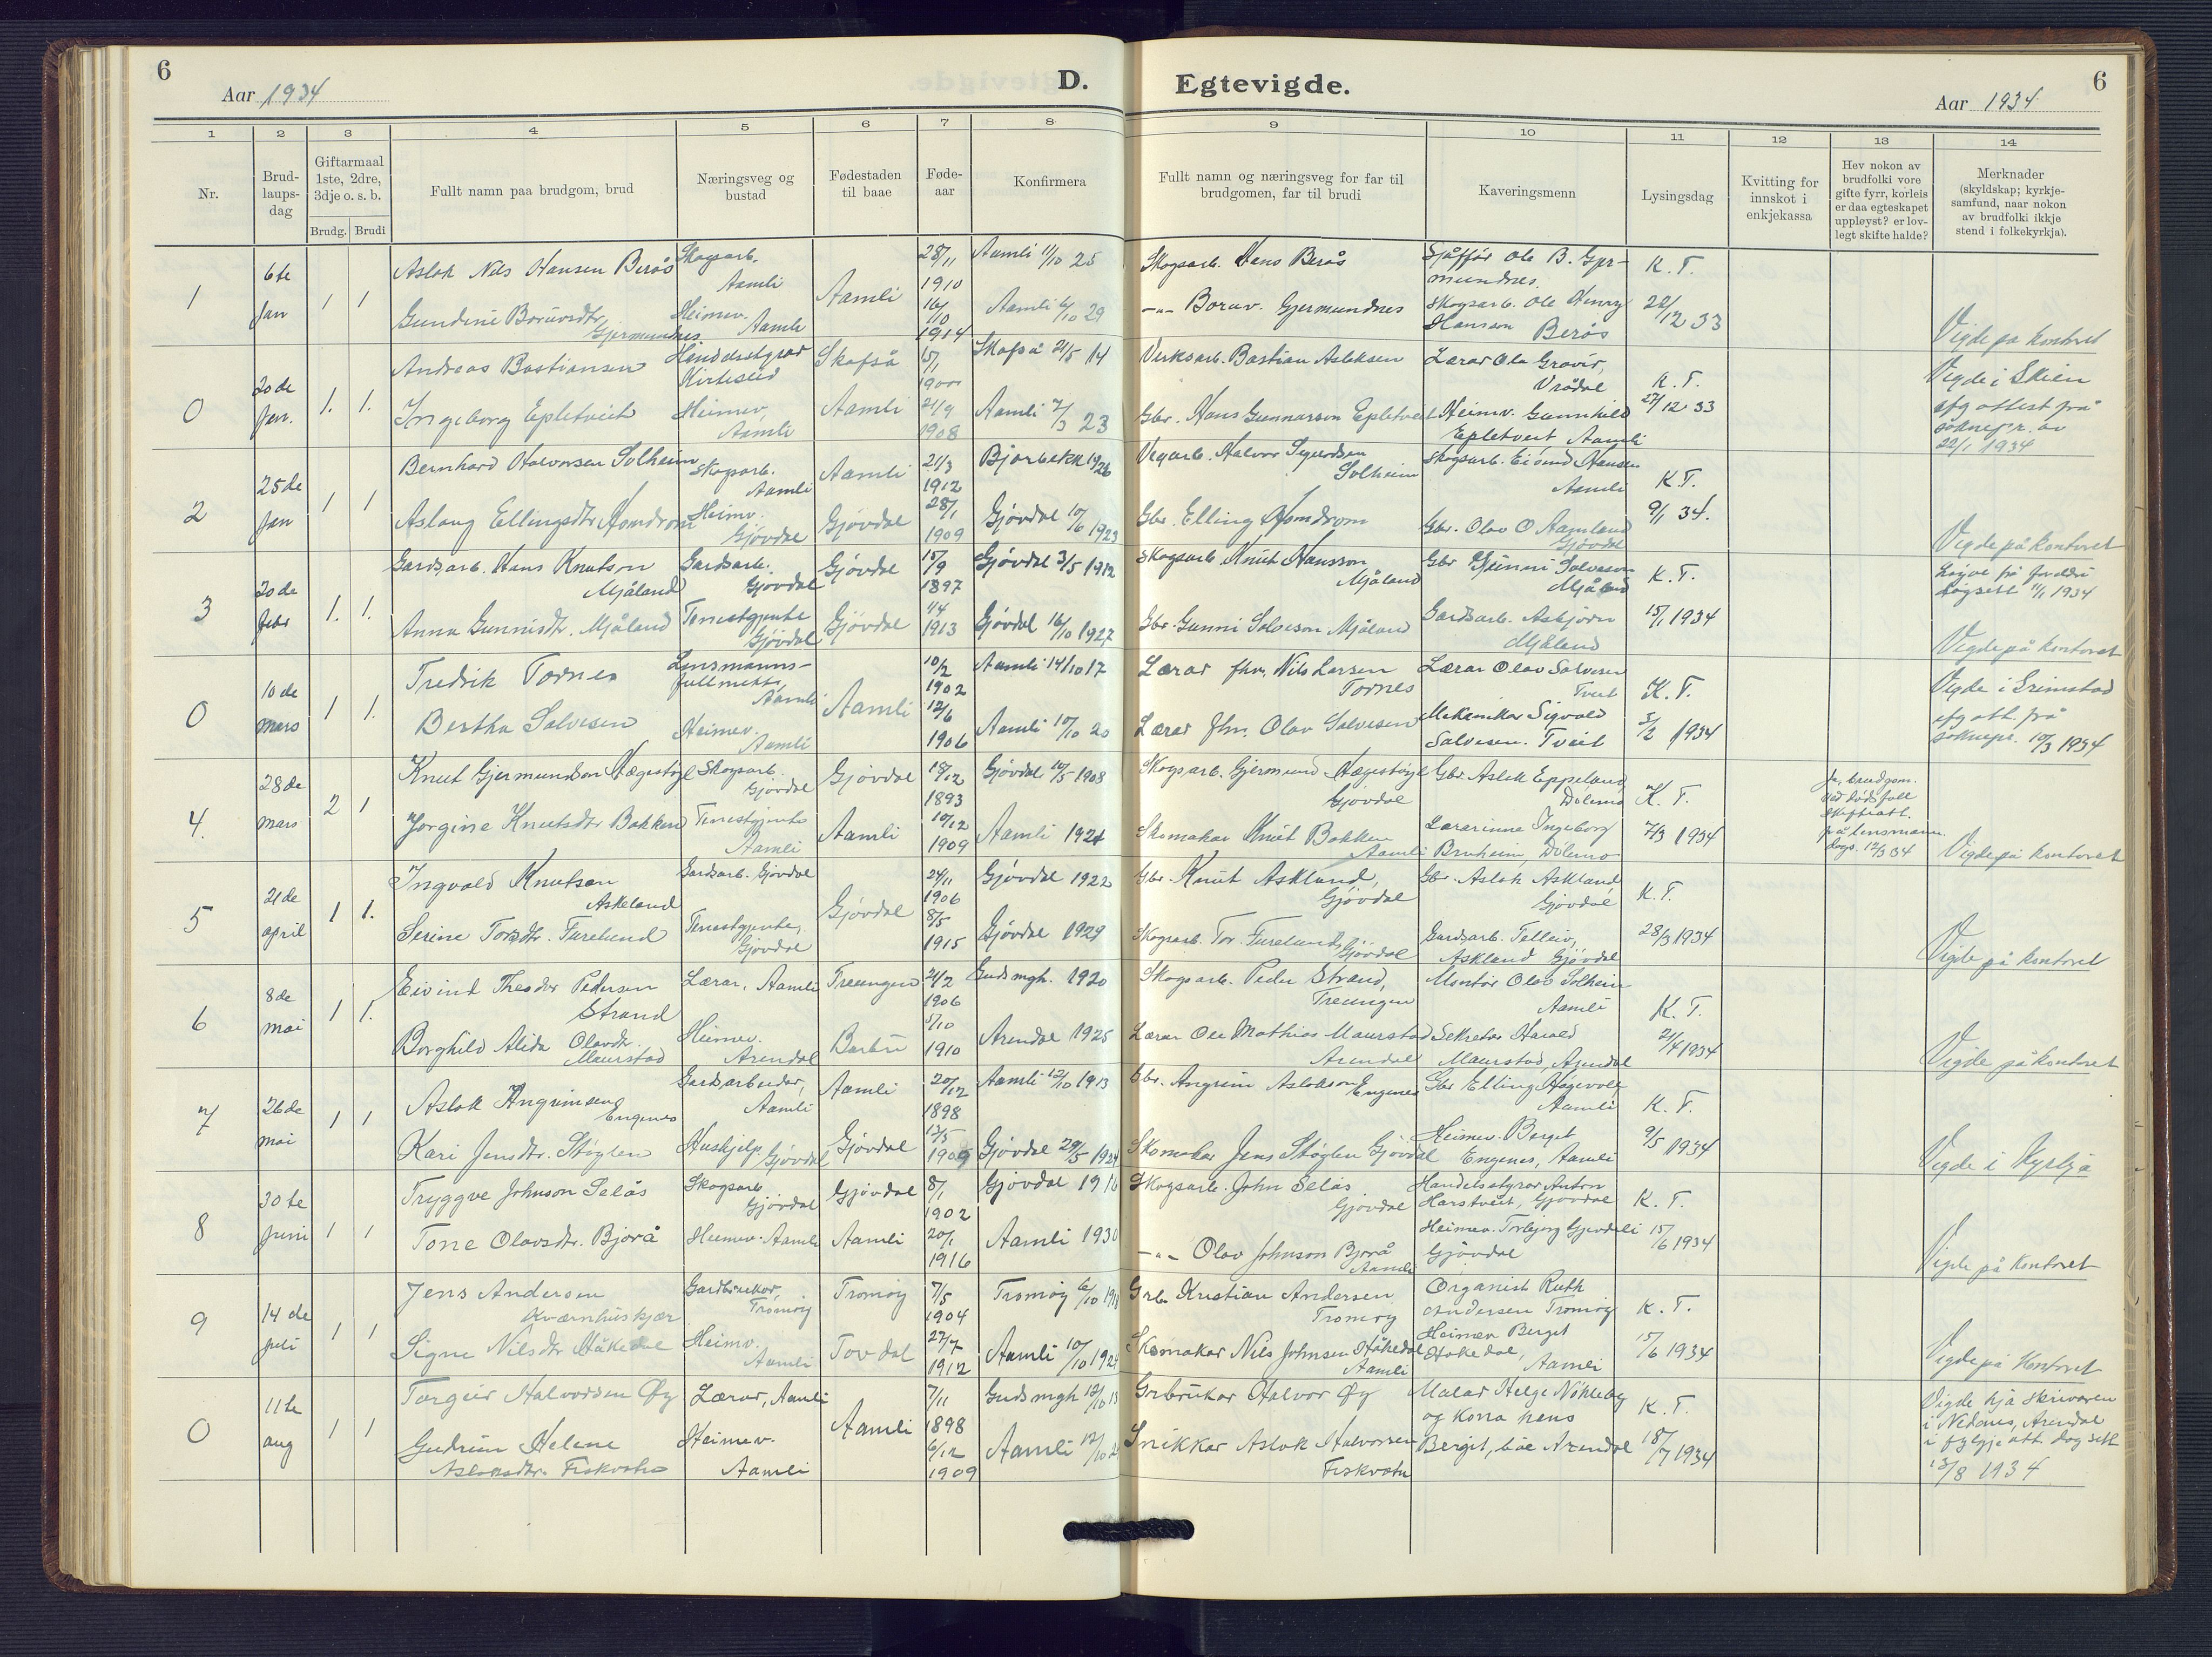 6
Aar 1934
D.
Egtevigde.
6
Aar 1934
1 2 3 4 5 6 7 8 9 10 11 12 13 14
Nr.
Brud-
laups-
dag
Giftarmaal
1ste, 2dre,
3dje o. s. b.
Brudg. Brudi
Fullt namn paa brudgom, brud
Næringsveg og
bustad
Fødestaden
til baae
Føde-
aar
Konfirmera
Fullt namn og næringsveg for far til
brudgomen, far til brudi
Kaveringsmenn
Lysingsdag
Kvitting for
innskot i
enkjekassa
Hev nokon av
brudfolki vore
gifte fyrr, korleis
er daa egteskapet
uppløyst? er lov-
legt skifte halde?
Merknader
(skyldskap; kyrkje-
samfund, naar nokon
av brudfolki ikkje
stend i folkekyrkja).
1
6te
Jan
1 1
Aslak Nils Hansen Berås
Skogsarb.
Aamli
Gundine
Gjermundnes
Heimev.
Aamli
Aamli
28/11
1910
16/10
1914
Aamli 11/10 25
Aamli 6/10 29
Skogsarb. Hans Berås
-"- Gjermundnes
Sjåffør Ole B. Gjer-
mundnes.
Skogsarb. Ole Henry
Hansen Berås
K. T.
28/12 33
Vigde på kontoret
0
20de
Jan.
1. 1.
Andreas Bastiansen
Kirteseid
Ingeborg Epletveit
Heimev,
Aamli
Skafså
Aamli
15/1
1900
21/9
1908
Skafså 21/5 14
Aamli 7/3 23
Verksarb. Bastian Aslaksen
Gbr. Hans Gunnarson Epletveit
Lærar Ola Gravir,
Vrådal
Heimv. Gunnhild
Epletveit Aamli
K. T.
27/12 33
Vigde i Skien
efg attest frå
soknepr. av
22/1 1934
2
25de
Jan
1 1
Bernhard Halvorsen Solheim
Skogsarb.
Aamli
Aslaug Ellingsdtr Homdrom
Heimv.
Gjövdal
Aamli
Gjövdal
21/3
1912
28/1
1909
Bjorbekk 1926
Gjövdal 10/6 1923
Vegarb. Halvor Sigurdsen
Solheim
Gbr. Elling Homdrom
Skogsarb. Eivind Hansen
Aamli
Gbr. Olav O Aamland
Gjövdal
K T.
9/1 34.
Vigde på kontoret
3
20de
febr
1. 1.
Gardsarb. Hans Knutson
Mjåland
Gardsarb.
Gjövdal
Anna Gunnisdtr. Mjåland
Tenestgjente
Gjövdal
Gjövdal
Gjövdal
15/9
1897
1/4
1913
Gjövdal 3/5 1912
Gjövdal 16/10 1927
Skogsarb. Knut Hansson
Mjåland
Gbr. Gunni Salveson Mjåland
Gbr Gunni Salveson
Mjåland
Gardsarb. Asbjörn
Mjåland
K. T.
15/1 1934
Löyve frå foreldri
dagsett 11/1 1934
Vigde på kontoret
0
10de
mars
1 1.
Fredrik Tornes
Lensmanns-
fullmekt.
Aamli
Bertha Salvesen
Heimev.
Aamli
Aamli
10/2
1902
12/6
1906
Aamli 14/10 17
Aamli 10/10 20
Lærar fhv. Nils Larsen
Tornes
Lærar fhv. Olav Salvesen
Lærar Olav Salvesen
Tveit
Mekanikar Sigvald
Salvesen. Tveit
K. T.
5/2 1934
Vigde i Grimstad
efg att. frå
soknepr. 10/3 1934
4.
28de
mars
2 1
Knut Gjermundson Hægestøyl
Skogsarb.
Gjövdal
Jorgine Knutsdtr Bakken
Tenestgjente
Aamli
Gjövdal
Aamli
18/12
1893
10/12
1909
Gjövdal 10/5 1908
Aamli 1924
Skogsarb. Gjermund Hægestøyl
Gjövdal
Skomakar Knut Bakken
Aamli
Gbr. Aslak Eppeland
Dölemo
Lærarinne Ingeborg
Bruheim, Dölemo
K. T.
7/3 1934
Ja, brudgom.
ved dödsfall
skifteatt.
frå lensmann.
dags. 12/3 34
Vigde på kontoret
5
21de
april
1 1.
Ingvald Knutsen
Askeland
Gardsarb. Gjövdal
Serine Torsdtr. Furelund
Tenestgjente,
Gjövdal
Gjövdal
24/11
1906
8/5
1915
Gjövdal 1922
Gjövdal 1929
Gbr. Knut Askland,
Gjövdal
Skogsarb. Tor Furelund,
Gjövdal
Gbr. Aslak Askland
Gjövdal
Gardsarb. Telleiv,
Askland Gjövdal
K. T.
28/3 1934
Vigde på kontoret
6
8de
mai
1 1.
Eivind Theodor Pedersen
Strand
Lærar, Aamli
Borghild Alida Olavdtr.
Maurstad
Heimev.
Arendal
Treungen
Barbu
24/2
1906
5/10
1910
Gudsmgh. 1920
Arendal 1925
Skogsarb. Peder Strand,
Treungen
Lærar Ole Mathias Maurstad
Arendal
Montör Olav Solheim
Aamli
Sekretær Harald
Maurstad, Arendal
K. T.
21/4 1934
Vigde på kontoret
7
26de
mai
1 1
Aslak Angrimsen
Engenes
Gardsarbeidar,
Aamli
Kari Jensdtr. Støylen
Hushjelp.
Gjövdal
Aamli
Gjövdal
20/12
1898
12/5
1909
Aamli 12/10 1913
Gjövdal 29/5 1924
Gbr. Angrim Aslakson
Engenes
Skomakar Jens Støylen Gjövdal
Gbr Elling Hagevoll
Aamli
Heimev. Berget
Engenes, Aamli
K. T.
9/5 1934
Vigde i Kyrkja
8
30te
Juni
1 1
Tryggve Johnson Selås
Skogsarb.
Gjövdal
Tone Olavsdtr. Bjorå
Heimev. Aamli
Gjövdal
Aamli
8/1
1902
20/1
1916
Gjövdal 1916
Aamli 1930
Skogsarb. John Selås
Gjövdal
-"- Olav Johnson Bjorå
Aamli
Handelsstyrar Anton
Harstveit, Gjövdal
Heimev. Torbjørg Gjevdeli
Gjövdal
K. T.
15/6 1934
Vigde på kontoret
9
14de
juli
1 1
Jens Andersen
Kværnhuskjær
Gardbrukar,
Tromöy
Signe Nilsdtr Håkedal
Heimv.
Aamli
Tromöy
Tovdal
7/5
1904
27/7
1912
Tromöy 6/10 1918
Aamli 10/10 192
Grb. Kristian Andersen
Tromoy
Skomakar Nils Johnsen Håkedal
Aamli
Organist Ruth
Andersen Tromöy
Heimev Berget
Håkedal,
Aamli
K. T.
15/6 1934
Vigde på kontoret
0
11te
aug
1 1
Torgeir Halvorsen Øy
Lærar, Aamli
Gudrun Helene
Aslaksdtr. Fiskvatn
Heimev.
Aamli
Aamli
7/11
1898
6/12
1909
Gudsmgh 12/10 13
Aamli 12/10 2
Grbrukar Halvor Øy
Snikkar Aslak Halvorsen
Fiskvatn
Malar Helge Nökleby
og kona hans
Bergit, båe Arendal
K. T.
18/7 1934
Vigde hjå skrivaren
i Nedenes, Arendal
i fylgje att. dagsett
13/8 1934